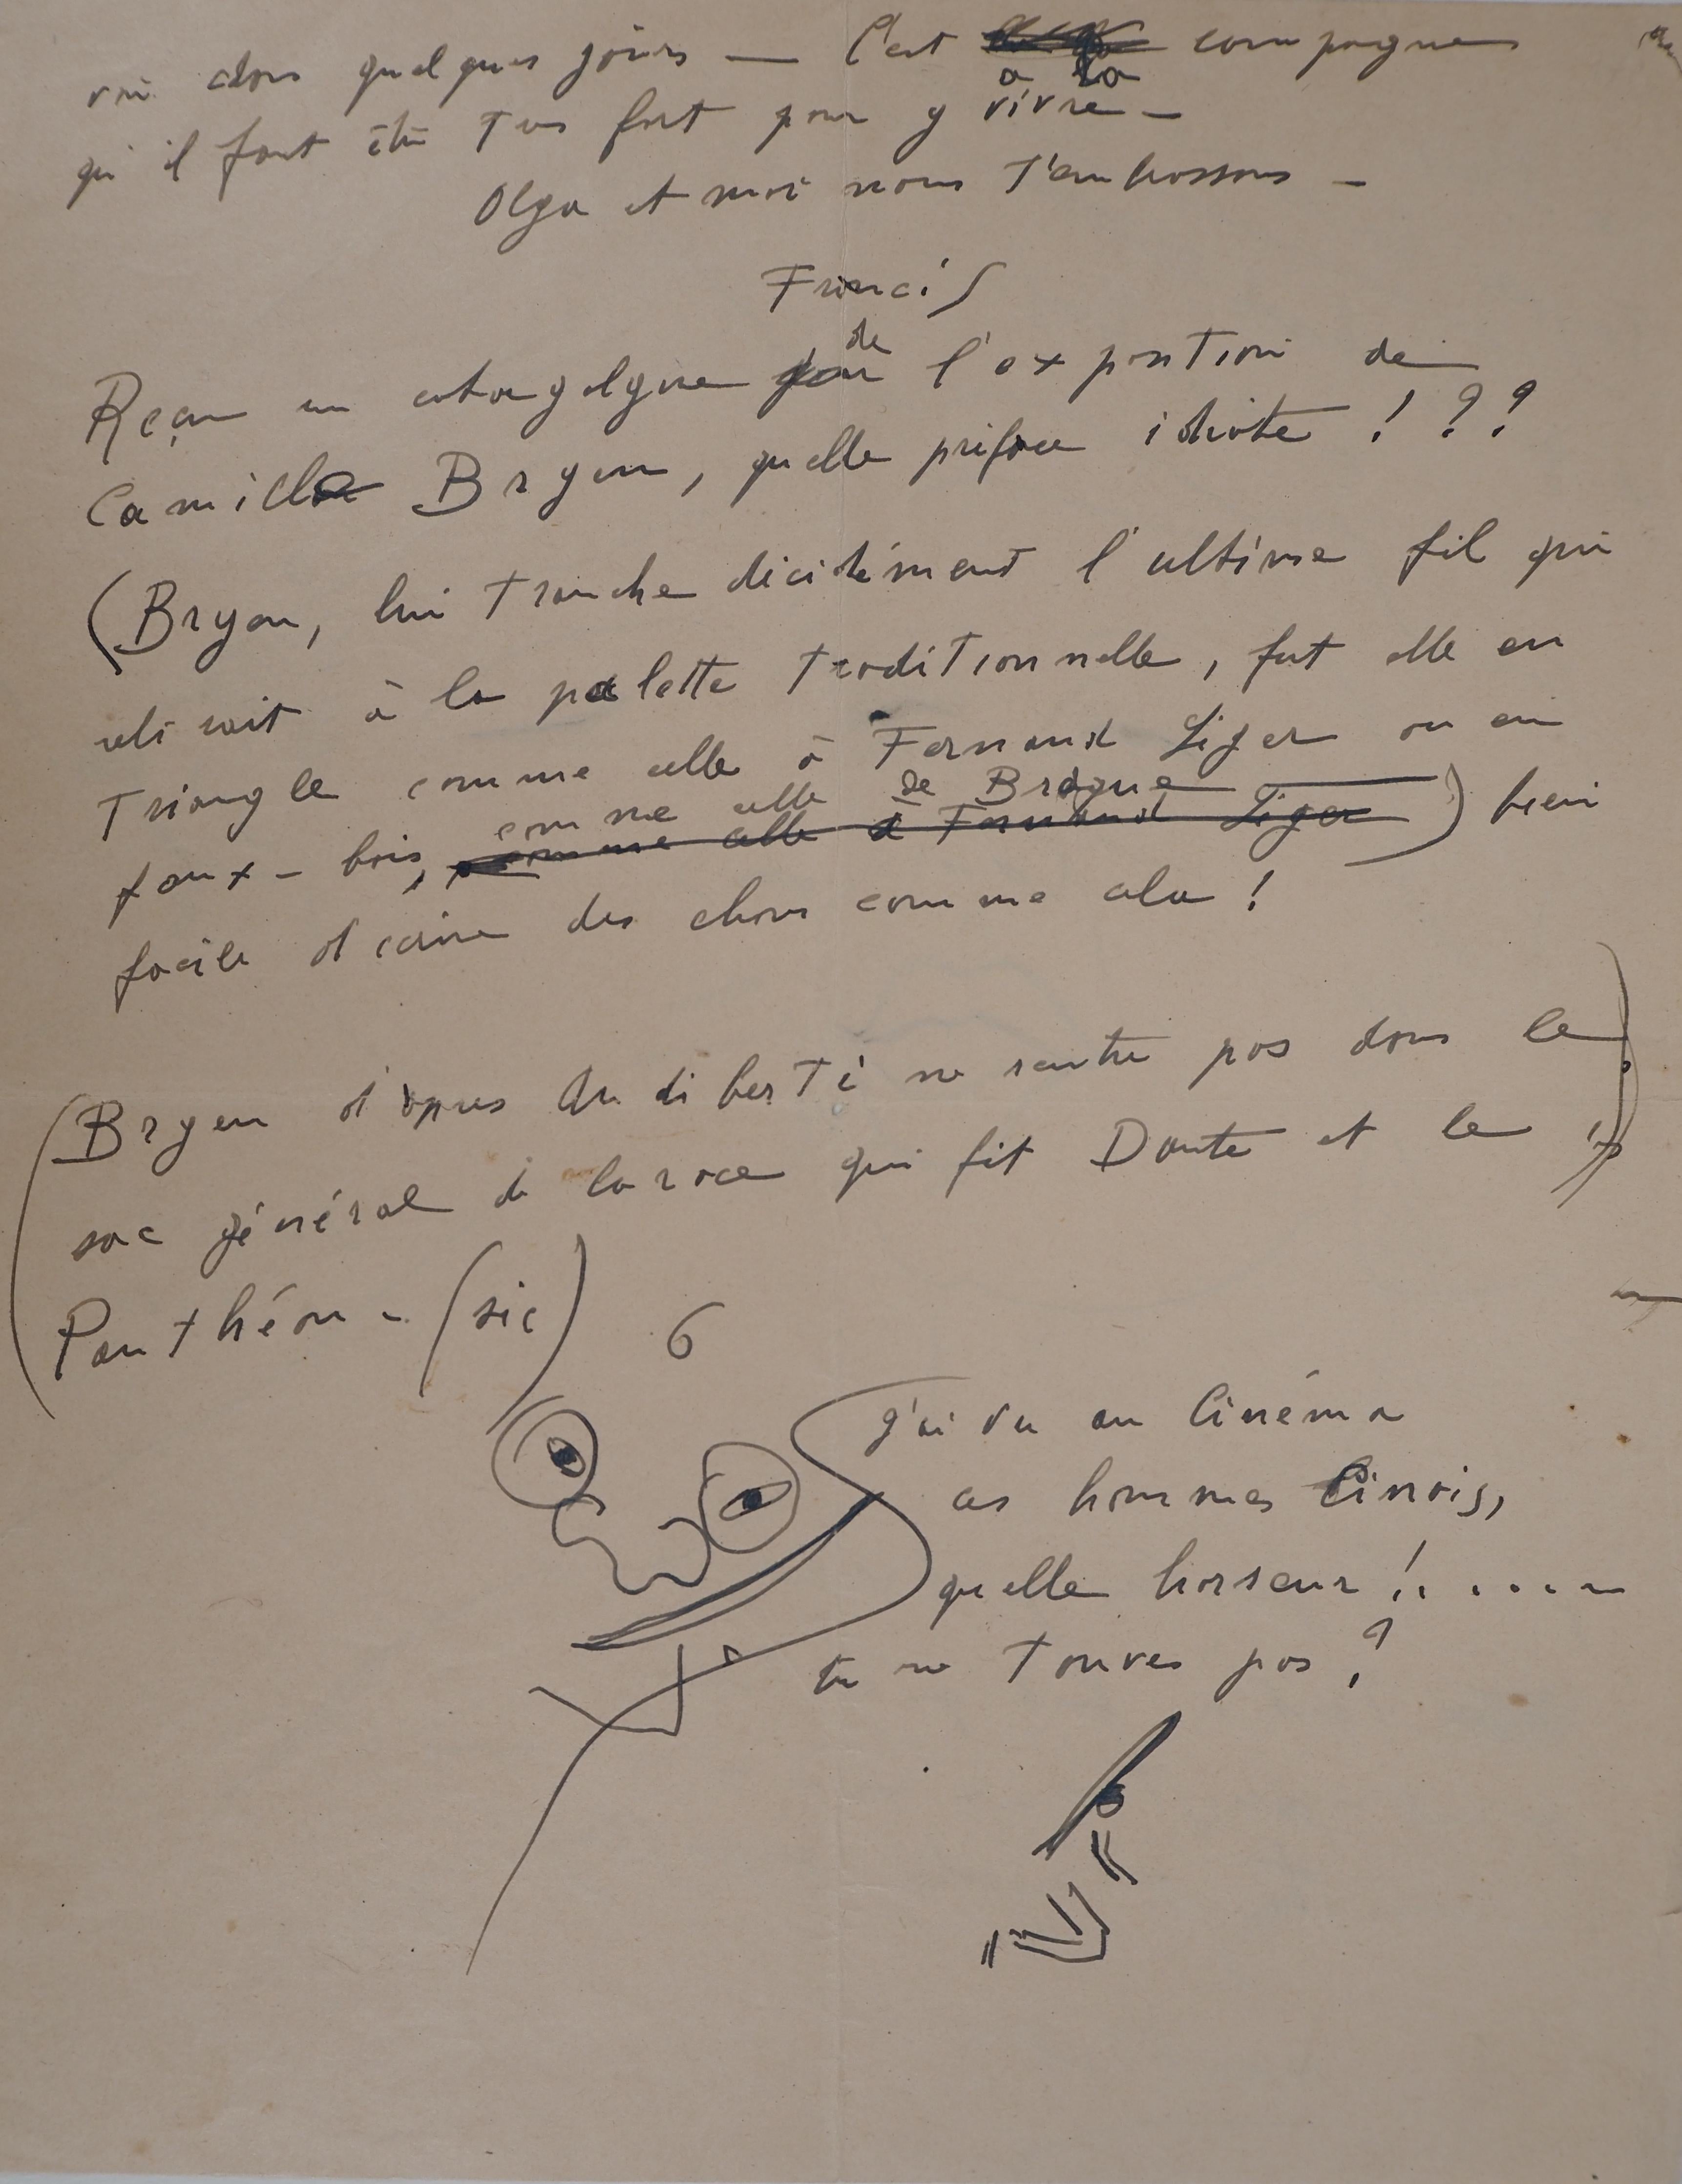 voir dans quelques jours — C'est à la campagne
qu'il faut être très fort pour y vivre —
Olga et moi nous t'embrassons —
Francis
Reçu un catalogue de l'exposition de
Camille Bryen, quelle préface idiote ! ? ?
(Bryen, lui tranche décidément l'ultime fil qui
reliait à la palette traditionnelle, fut elle en
triangle comme celle à Fernand Léger ou en
faux-bois, comme celle de Braque) bien
comme celle à Fernand Léger
facile d'écrire des choses comme cela !
(Bryen d'après Audiberti ne rentre pas dans le
sac général de la race qui fit Dante et le
Panthéon - (sic)
J'ai vu au Cinéma
ces hommes Cinois,
quelle horreur ! . . . . .
tu ne touves pas ?